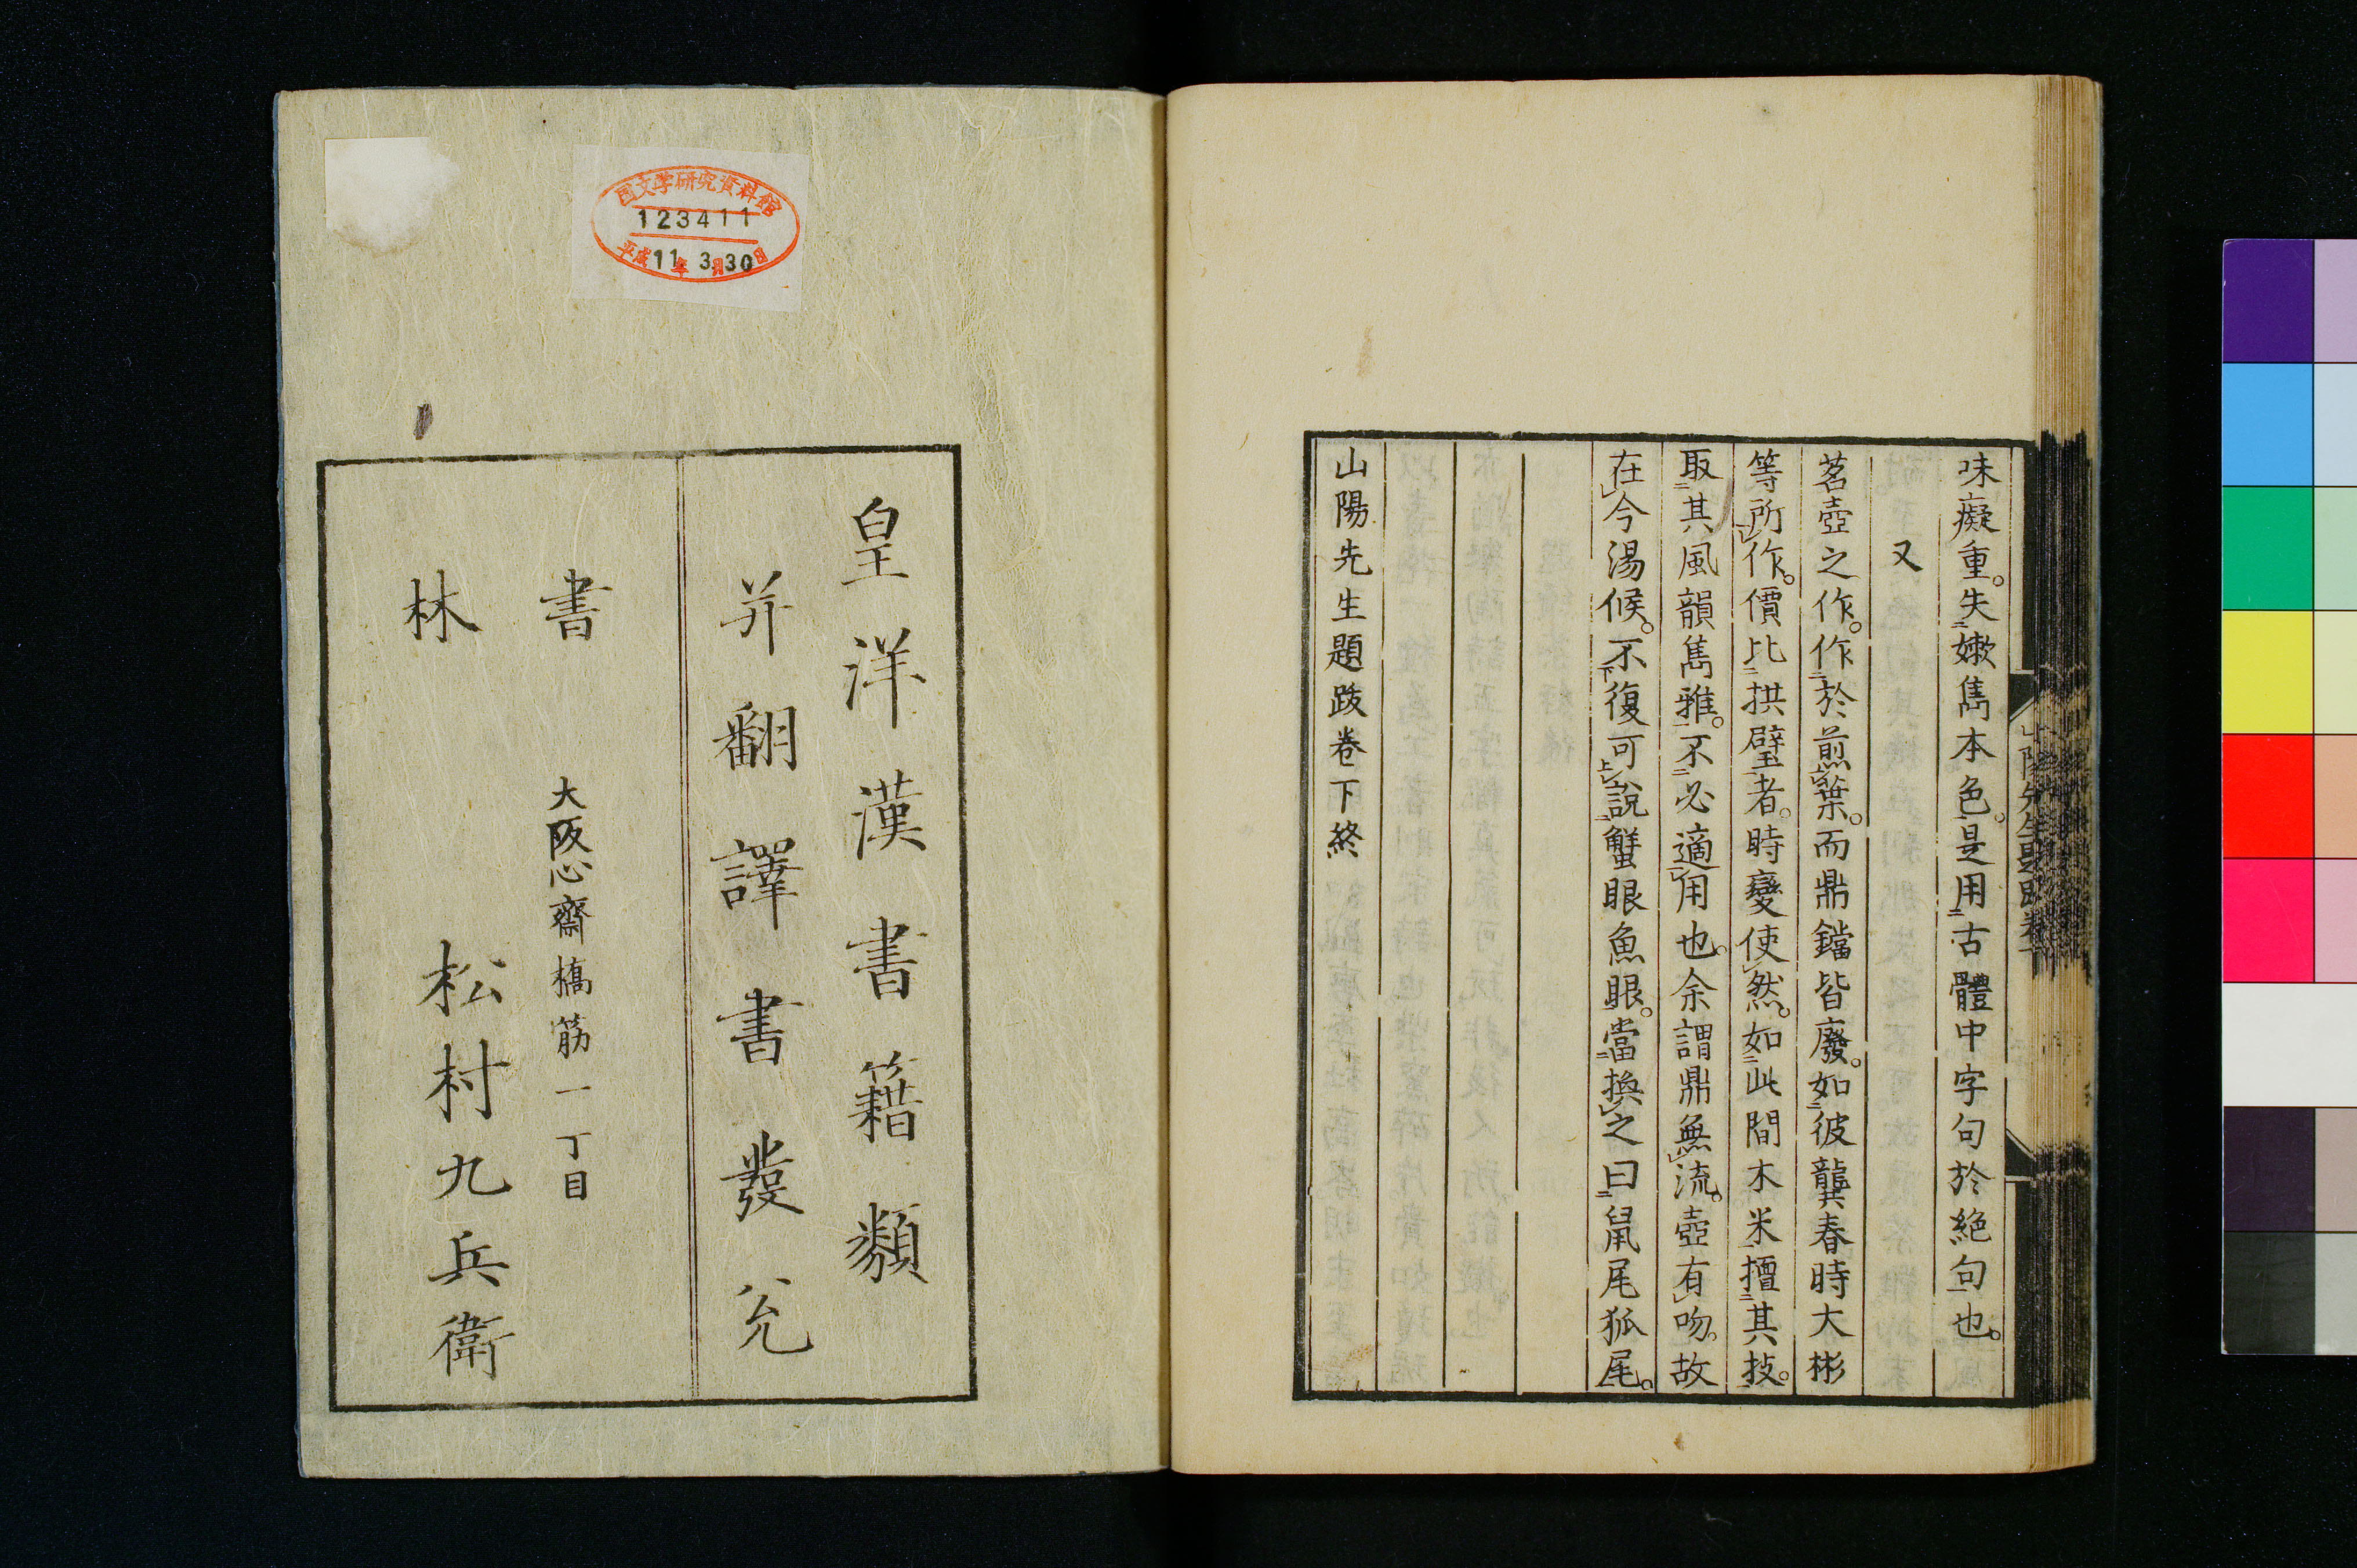 味癡重。失嫩雋本色。是用古體中字句於絕句也。
又
茗壺之作。作於煎葉。而鼎鐺皆廢。如彼龔春時大彬
等所作。價比拱璧者。時變使然。如此間木米擅其技。
取其風韻雋雅。不必適用也。余謂鼎無流。壺有吻。故
在今湯候。不復可說蟹眼魚眼。當換之曰鼠尾狐尾。
山陽先生題跋卷下終
國文学研究資料館
123411
平成11年3月30日
皇洋漢書籍類
并翻譯書發兌
書林
大阪心齋橋筋一丁目
松村九兵衛